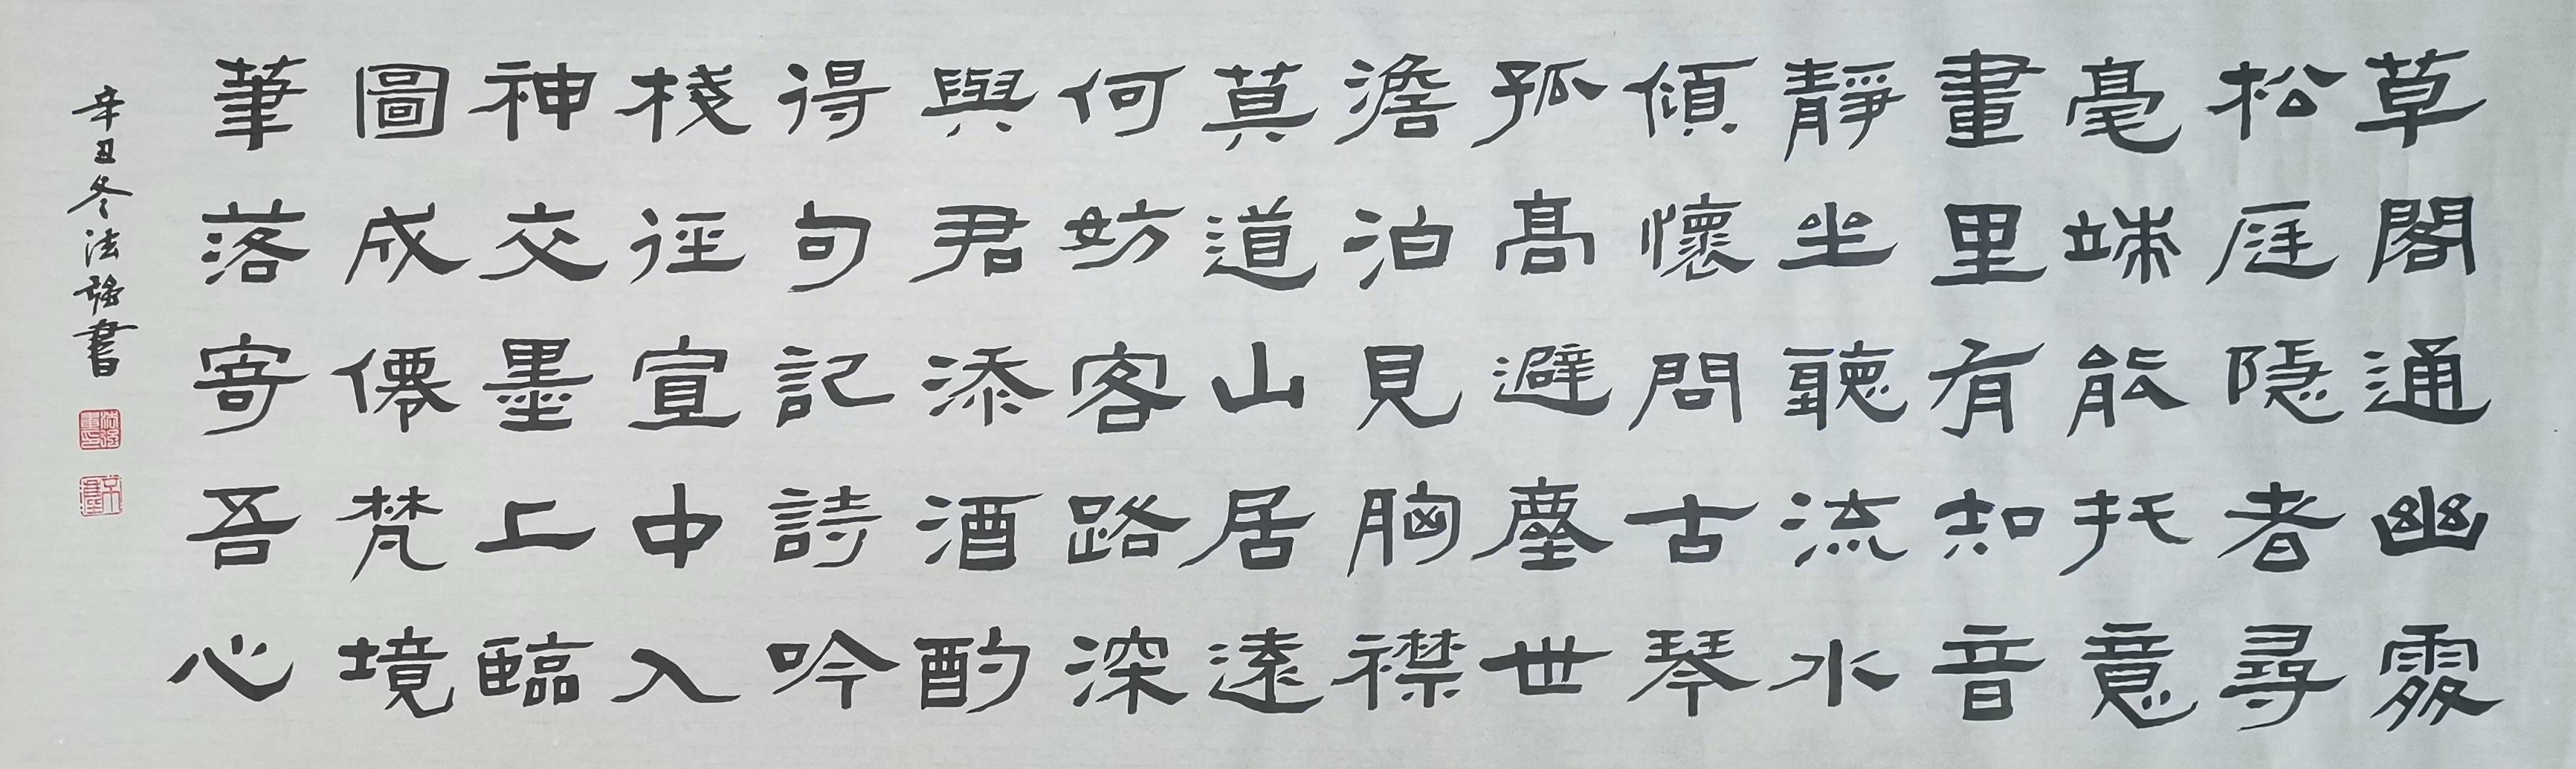 草閣通幽處
松庭隱者尋
毫端能托意
畫里有知音
靜坐聽流水
傾懷問古琴
孤高避塵世
澹泊見胸襟
莫道山居遠
何妨客路深
與君添酒酌
得句記詩吟
棧徑宣中入
神交墨上臨
圖成僊梵境
筆落寄吾心
辛丑冬法強書